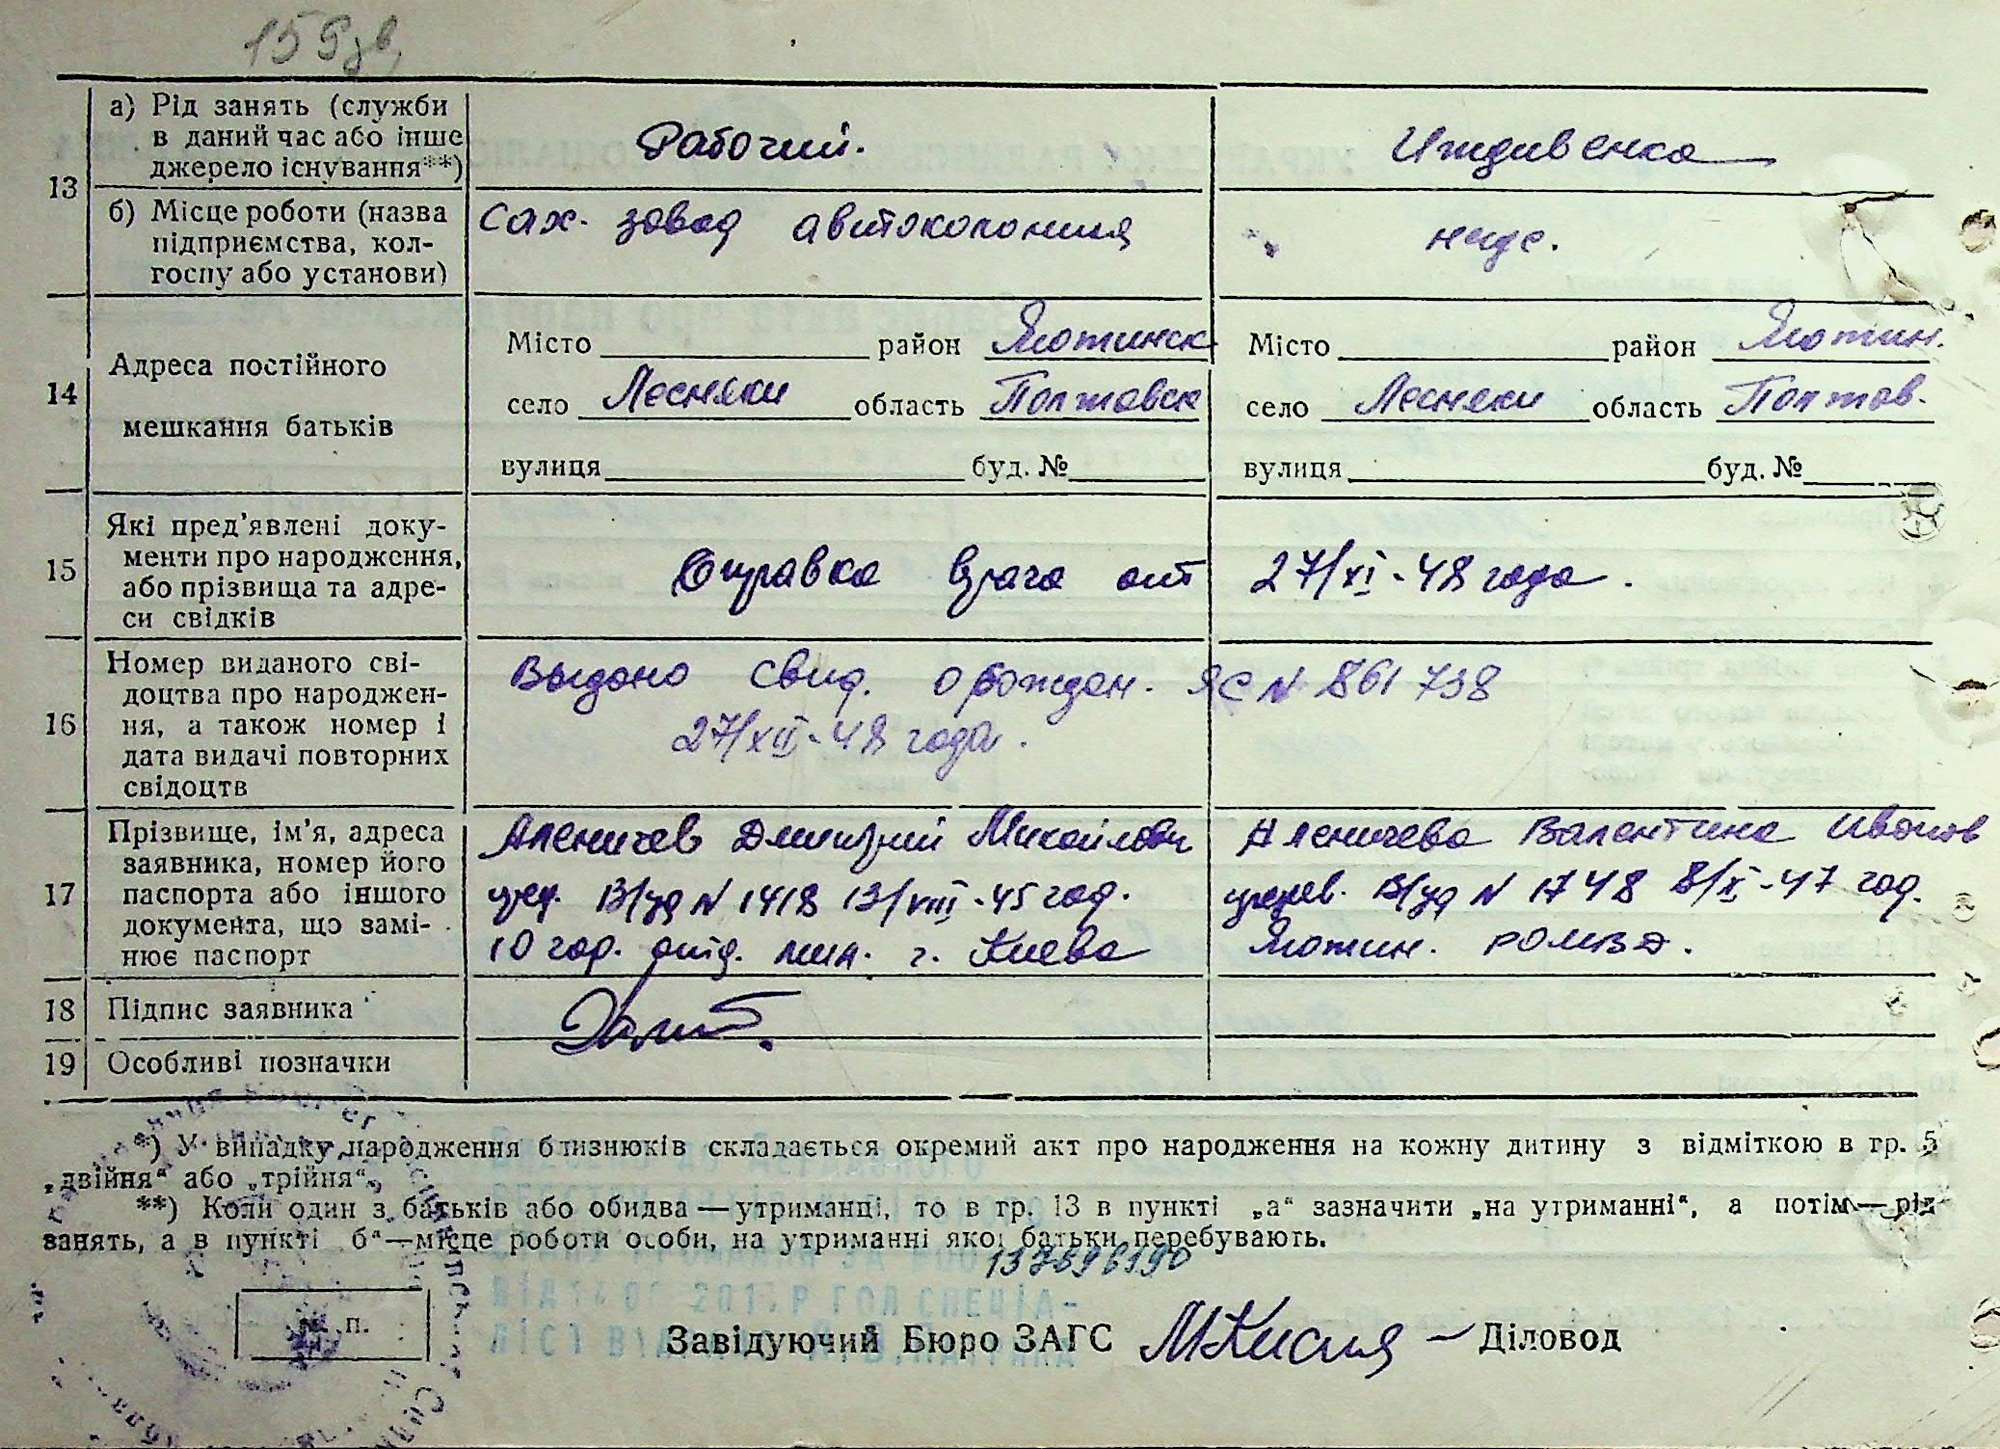 159 зв,
13
а) Рід занять (служби
в даний час або інше
джерело існування**)
Рабочий.
Иждивенка
б) Місце роботи (назва
підприємства, кол-
госпу або установи)
Сах. завод автоколонния
14
Адреса постійного
мешкання батьків
Місто район Яготинск
село Лесняки область Полтавск
вулиця буд. №
Місто район Яготин.
село Лесняки область Полтав.
вулиця буд. №
15
Які пред'явлені доку-
менти про народження,
або прізвища та адре-
си свідків
Справка врача от 27/XI-48 года.
16
Номер виданого сві-
доцтва про народжен-
ня, а також номер і
дата видачі повторних
свідоцтв
Выдано свид. о рожден. ЯС N 861738
27/XII-48 года.
17
Прізвище, ім'я, адреса
заявника, номер його
паспорта або іншого
документа, що замі-
нює паспорт
Аленичев Дмитрий Михайлович
пред. В/уд N 1418 13/VIII-45 год.
10 гор. отд. мил. г. Киева
Аленичева Валентина Иванов
предев. В/уд N 1748 8/X-47 год.
Яготин. РОМВД.
18
Підпис заявника
19
Особливі позначки
*) У випадку народження близнюків складається окремий акт про народження на кожну дитину з відміткою в гр. 5
„двійня“ або „трійня“.
**) Коли один з батьків або обидва — утриманці, то в гр. 13 в пункті „а“ зазначити „на утриманні“, а потім — рід
занять, а в пункті б“—місце роботи особи, на утриманні якої батьки перебувають.
м. п.
Завідуючий Бюро ЗАГС МКисля Діловод